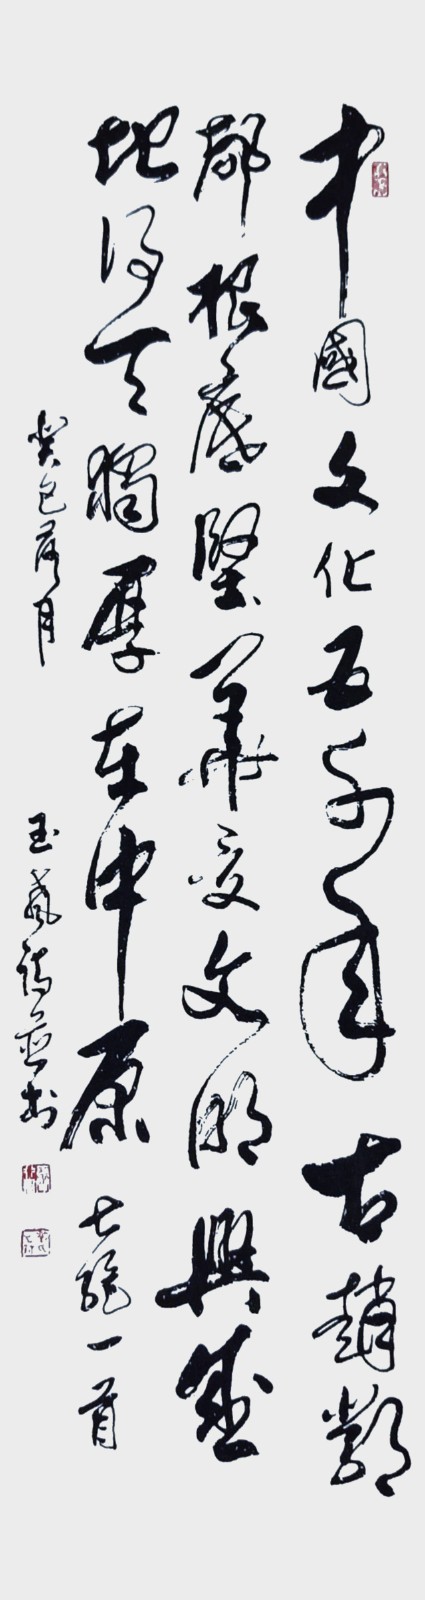 中國文化五千年古趙鄴
都根底堅華夏文明興盛
地得天獨厚在中原七絕一首
癸巳月玉詩並書